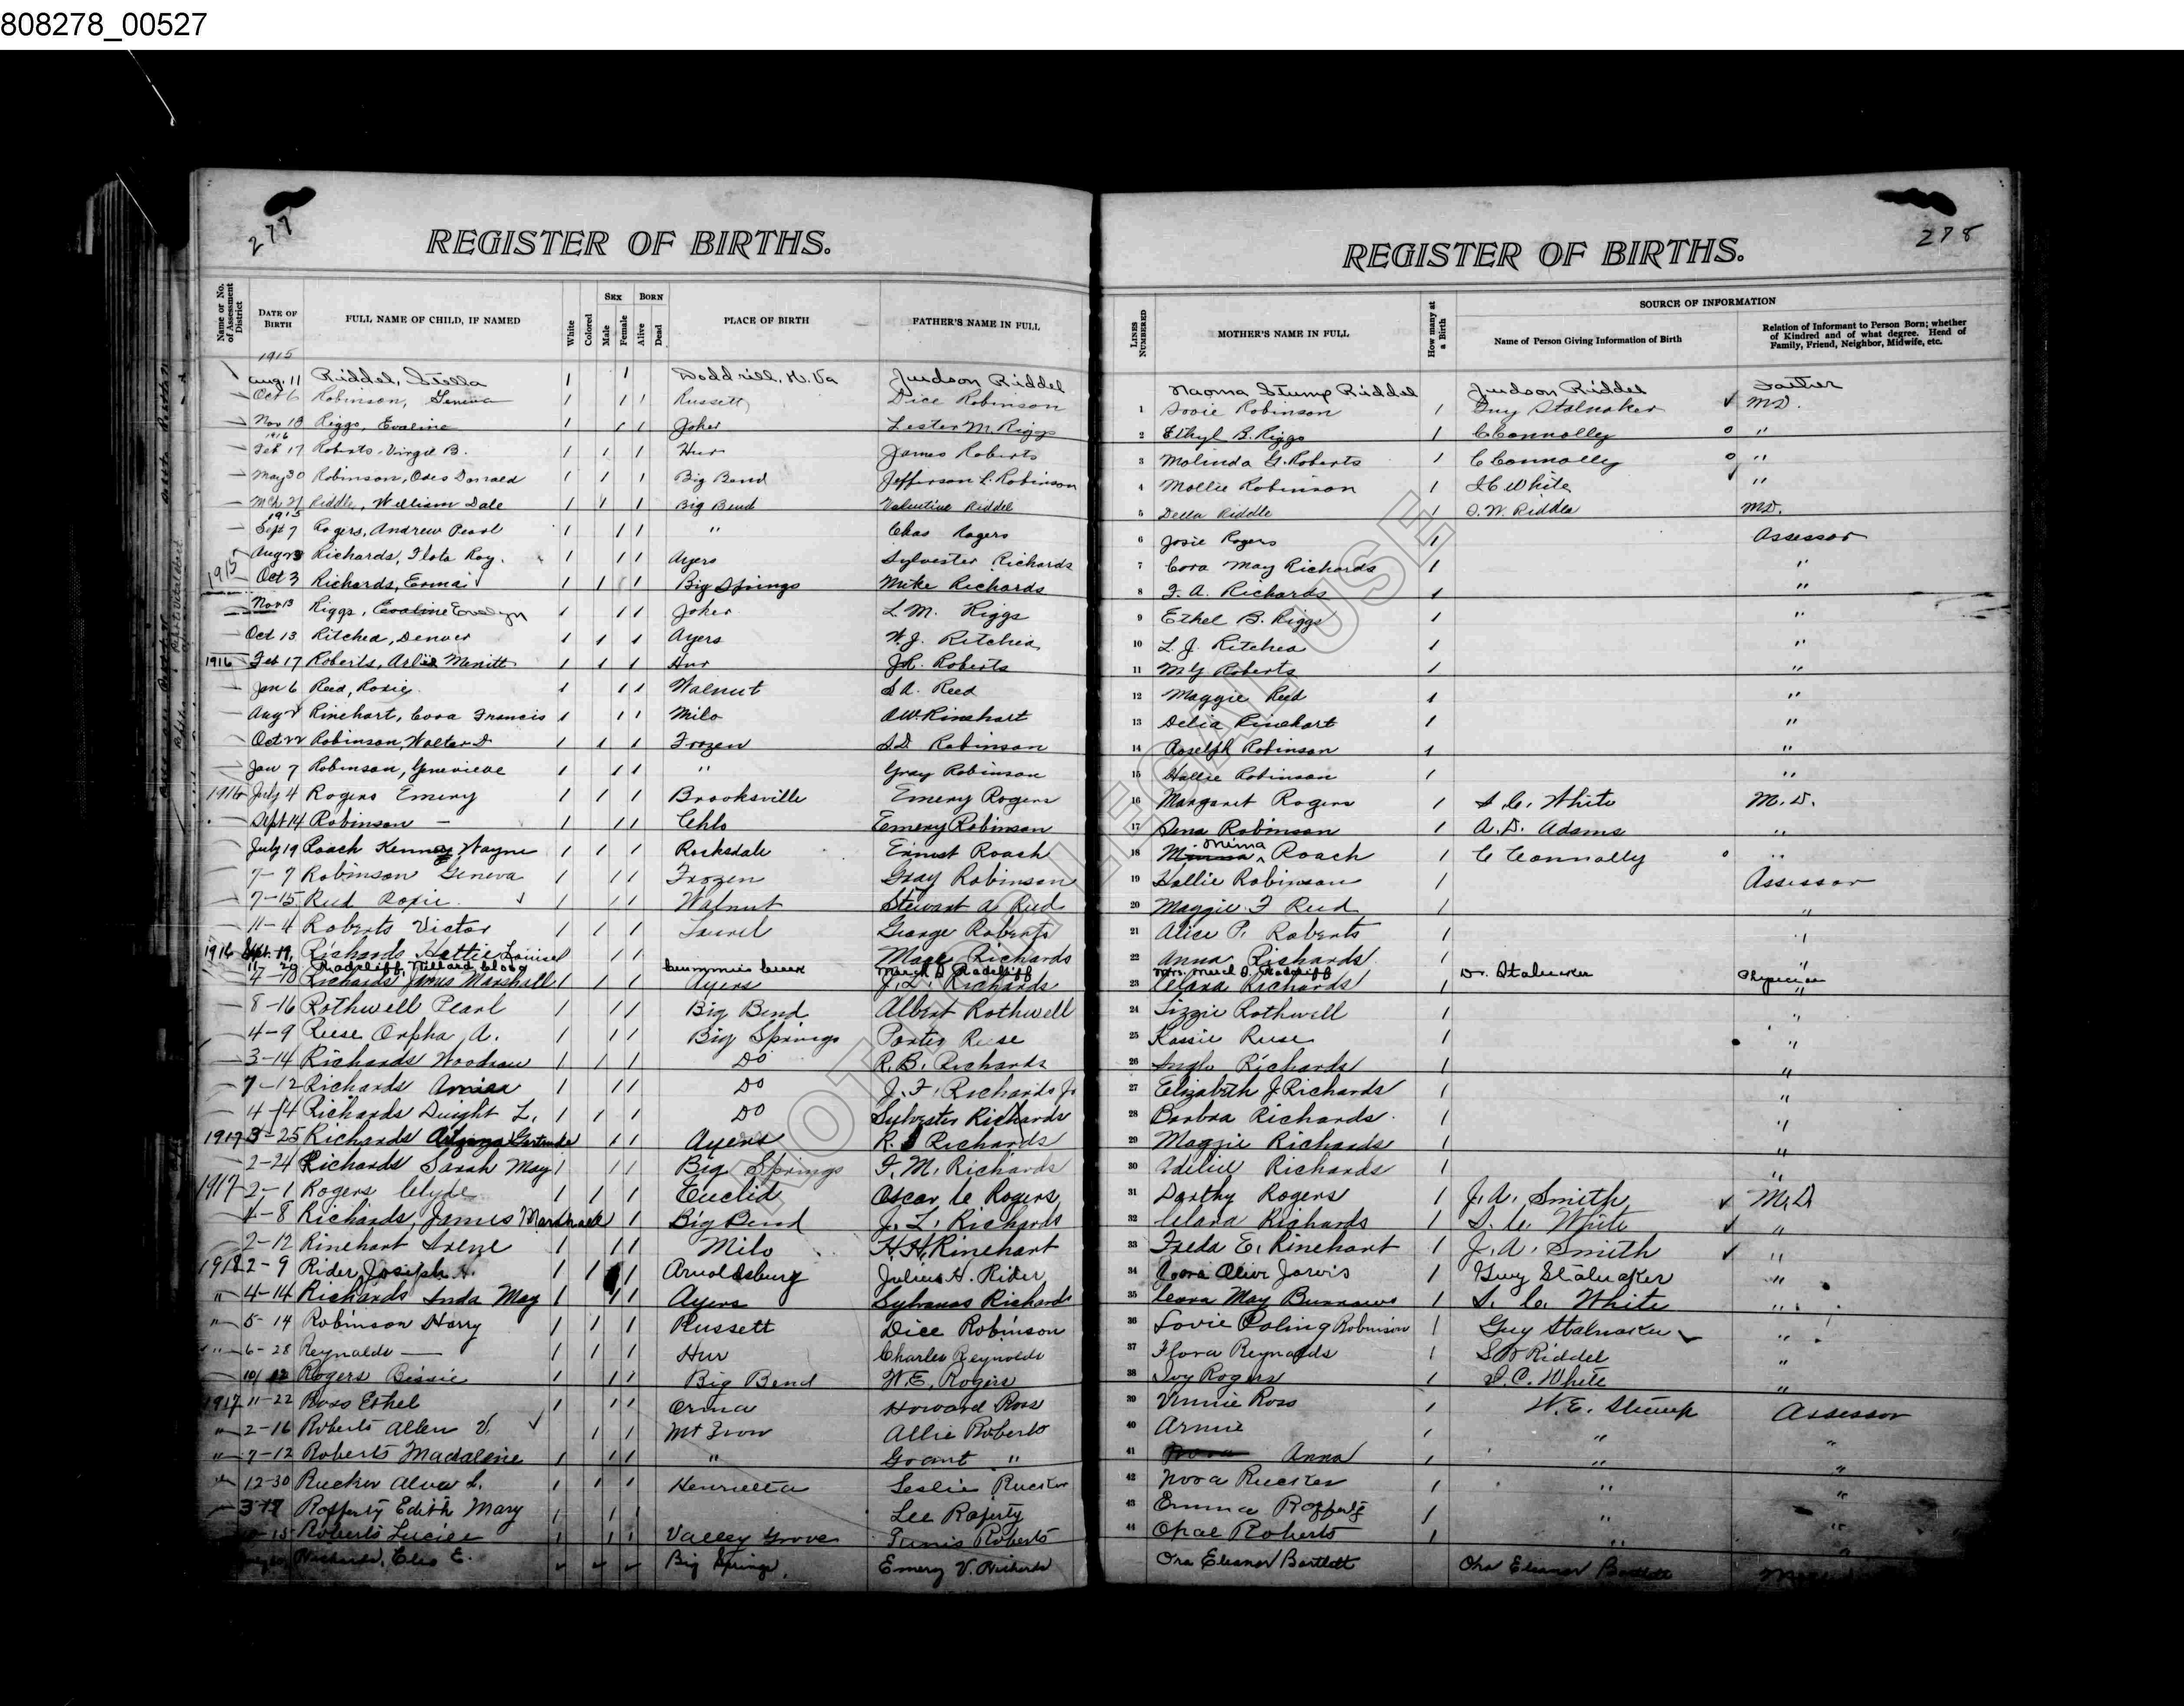 808278_00527
277
REGISTER OF BIRTHS.
278
REGISTER OF BIRTHS.
Name or No. of Assessment District
DATE OF BIRTH
FULL NAME OF CHILD, IF NAMED
White
Colored
SEX
Male
Female
BORN
Alive
Dead
PLACE OF BIRTH
FATHER'S NAME IN FULL
LINES NUMBERED
MOTHER'S NAME IN FULL
How many at a Birth
SOURCE OF INFORMATION
Name of Person Giving Information of Birth
Relation of Informant to Person Born; whether of Kindred and of what degree. Head of Family, Friend, Neighbor, Midwife, etc.
1915
Aug. 11 Riddel, Stella 1 1 Doddrill, W. Va Judson Riddel Naoma Stump Riddel Judson Riddel Father
Oct 6 Robinson, Geneva 1 1 1 Russett Dice Robinson 1 Dovie Robinson 1 Guy Stalnaker MD.
Nov 13 Riggs, Evaline 1 1 1 Joker Lester M. Riggs 2 Ethyl B. Riggs 1 C Connolly "
1916
Feb 17 Roberts, Virgil B. 1 1 1 Hur James Roberts 3 Malinda G. Roberts 1 C Connolly "
May 30 Robinson, Odes Donald 1 1 1 Big Bend Jefferson L. Robinson 4 Mollie Robinson 1 S C White "
Mch 21 Riddle, William Dale 1 1 1 Big Bend Valentine Riddel 5 Della Riddle 1 S. W. Riddle MD.
1915
Sept 7 Rogers, Andrew Pearl 1 1 1 " Chas Rogers 6 Josie Rogers 1 Assessor
Aug 23 Richards, Flota Roy. 1 1 1 Ayers Sylvester Richards 7 Cora May Richards 1 "
1915 Oct 3 Richards, Erma 1 1 1 Big Springs Mike Richards 8 F. A. Richards 1 "
Nov 13 Riggs, Evaline Evelyn 1 1 1 Joker L. M. Riggs 9 Ethel B. Riggs 1 "
Oct 13 Ritchea, Denver 1 1 1 Ayers W. J. Ritchea 10 L. J. Ritchea 1 "
1916 Feb 17 Roberts, Arlie Merritt 1 1 1 Hur J.R. Roberts 11 M G Roberts 1 "
Jan 6 Reed, Roxie 1 1 1 Walnut S A. Reed 12 Maggie Reed 1 "
Aug 2 Rinehart, Cora Francis 1 1 1 Milo A W. Rinehart 13 Delia Rinehart 1 "
Oct 22 Robinson, Walter D 1 1 1 Frozen S. D. Robinson 14 Roselph Robinson 1 "
Jan 7 Robinson, Genevieve 1 1 1 " Gray Robinson 15 Hallie Robinson 1 "
1916 July 4 Rogers Emery 1 1 1 Brooksville Emery Rogers 16 Margaret Rogers 1 S. C. White M. D.
Sept 14 Robinson - 1 1 1 Chlo Emery Robinson 17 Dena Robinson 1 A. D. Adams "
July 19 Roach Kennay, Wayne 1 1 1 Rocksdale Ernest Roach 18 Mima Roach 1 C Connolly "
7-7 Robinson Geneva 1 1 1 Frozen Gray Robinson 19 Hallie Robinson 1 Assessor
7-15 Reed Roxie 1 1 1 Walnut Stewart A Reed 20 Maggie F Reed 1 "
11-4 Roberts Victor 1 1 1 Laurel George Roberts 21 Alice P. Roberts 1 "
1916 Sept. 19, Richards Hattie Louise 1 1 Richards 22 Anna Richards 1 "
11 29 Radcliff, Willard Cloos Cummins Creek Murel D Radcliff Mrs. Murel D. Radcliff Dr. Stalnaker Physician
4-10 Richards James Marshall 1 1 1 Ayers J. L. Richards 23 Clara Richards 1 "
8-16 Rothwell Pearl 1 1 1 Big Bend Albert Rothwell 24 Lizzie Rothwell 1 "
4-9 Reese Orpha A. 1 1 1 Big Springs Porter Reese 25 Kassie Reese 1 "
3-14 Richards Woodrow 1 1 1 Do R. B. Richards 26 Richards 1 "
7-12 Richards 1 1 1 Do J. F. Richards Jr 27 Elizabeth J Richards 1 "
4-14 Richards Dwight L. 1 1 1 Do Sylvester Richards 28 Barbra Richards 1 "
1917 3-25 Richards Gertrude 1 1 Ayers R. Richards 29 Maggie Richards 1 "
2-24 Richards Sarah May 1 1 1 Big Springs F. M. Richards 30 Adelie Richards 1 "
1917 2-1 Rogers Clyde 1 1 1 Euclid Oscar C Rogers 31 Dorthy Rogers 1 J. A. Smith M. D
4-8 Richards, James Marshall 1 Big Bend J. L. Richards 32 Clara Richards 1 S. C. White "
2-12 Rinehart Irene 1 1 1 Milo H. H. Rinehart 33 Freda E. Rinehart 1 J. A. Smith "
1918 2-9 Rider Joseph H. 1 1 1 Arnoldsburg Julius H. Rider 34 Olive Jarvis 1 Guy Stalnaker "
" 4-14 Richards Inda May 1 1 1 Ayers Sylvanas Richards 35 Ceora May Burrows 1 S. C. White "
" 5-14 Robinson Harry 1 1 1 Russett Dice Robinson 36 Dovie Poling Robinson 1 Guy Stalnaker "
" 6-28 Reynolds — 1 1 1 Hur Charles Reynolds 37 Flora Reynolds 1 S W Riddel "
10/ 12 Rogers Bessie 1 1 1 Big Bend W. E. Rogers 38 Ivy Rogers 1 S. C. White "
1917 11-22 Ross Ethel 1 1 1 Orma Howard Ross 39 Vinnie Ross 1 W. E. Stump Assessor
" 2-16 Roberts Allen V. 1 1 Mt Zion Allie Roberts 40 Armie 1 " "
" 7-12 Roberts Madaleine 1 1 1 " Grant " 41 Anna 1 " "
" 12-30 Rucker Alva L. 1 1 1 Henrietta Leslie Rucker 42 Nora Rucker 1 " "
3-17 Rafferty Edith Mary 1 1 Lee Raferty 43 Emma Rafferty 1 " "
Roberts Lucile 1 1 1 Valley Grove Tunis Roberts 44 Opal Roberts 1 " "
Richards, Cleo E. Big Springs, Emery V. Richards Ora Eleanor Bartlett Ora Eleanor Bartlett
NOT FOR LEGAL USE